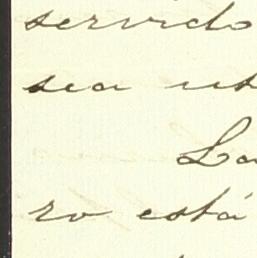 servido
sea us
La
ro está